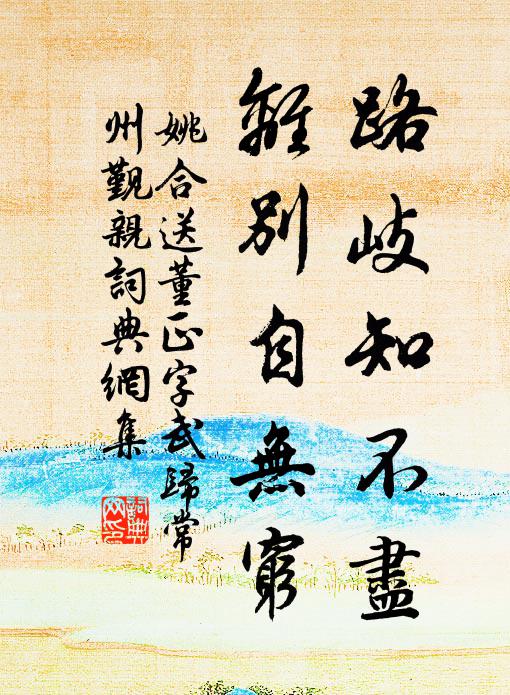 路岐知不盡
離別自無窮
姚合送董正字武歸常
州觐親詞典網集